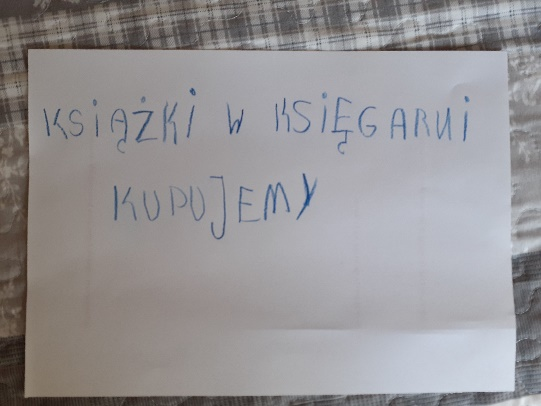 KSIĄŻKI W KSIĘGARNI
KUPUJEMY